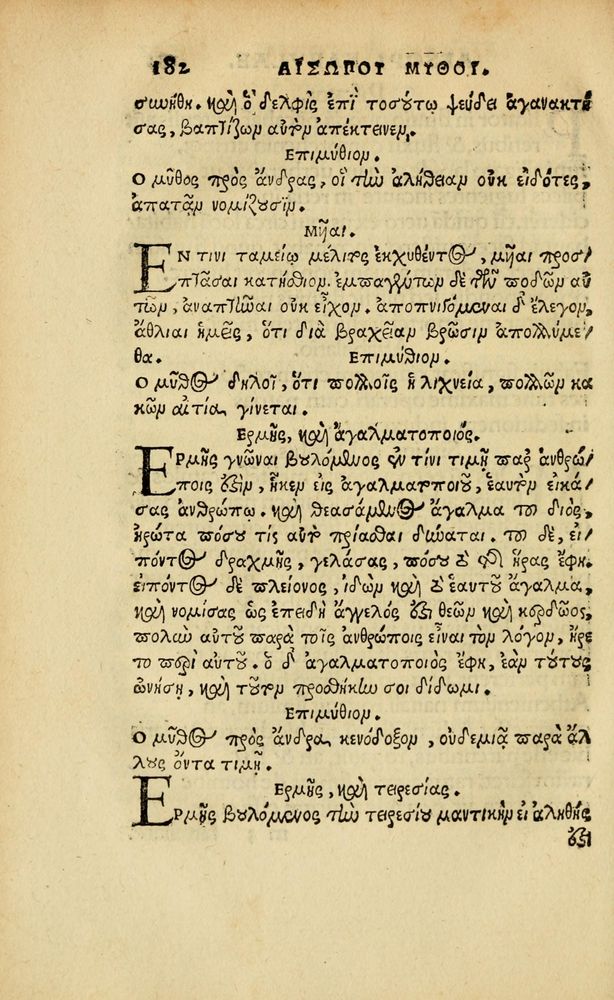 182 ΑΙΣΩΠΟΥ ΜΥΘΟΙ.
συνήθη. καὶ ὁ δελφὶς ἐπὶ τοσούτῳ ψεύδει ἀγανακτή
σας, βαπτίζων αὐτὸν ἀπέκτεινεν.
Επιμύθιον.
Ο μῦθος πρὸς ἄνδρας, οἳ τὴν ἀλήθειαν οὐκ εἰδότες,
ἀπατᾶν νομίζουσιν.
Μῆαι.
ΕΝ τινι ταμείῳ μέλιτος ἐκχυθέντος, μῆαι προσ
πτᾶσαι κατήσθιον. ἐμπαγέντων δὲ τῶν ποδῶν αὐ
τῶν, ἀναπτῆναι οὐκ εἶχον. ἀποπνιγόμεναι δ' ἔλεγον,
ἄθλιαι ἡμεῖς, ὅτι διὰ βραχεῖαν βρῶσιν ἀπολλύμε
θα. Επιμύθιον.
Ο μῦθος δηλοῖ, ὅτι πολλοῖς ἡ λιχνεία, πολλῶν κα
κῶν αἰτία γίνεται.
Ερμῆς, καὶ ἀγαλματοποιός.
ΕΡμῆς γνῶναι βουλόμενος ἐν τίνι τιμῇ παρ' ἀνθρώ
ποις ἐστὶν, ἧκεν εἰς ἀγαλματοποιοῦ, ἑαυτὸν εἰκά
σας ἀνθρώπῳ. καὶ θεασάμενος ἄγαλμα τοῦ διὸς,
ἠρώτα πόσου τὶς αὐτὸ πρίασθαι δύναται. τοῦ δὲ, εἰ
πόντος δραχμῆς, γελάσας, πόσου τὸ τῆς ἥρας ἔφη.
εἰπόντος δὲ πλείονος, ἰδὼν καὶ τὸ ἑαυτοῦ ἄγαλμα,
καὶ νομίσας ὡς ἐπειδὴ ἄγγελός ἐστι θεῶν καὶ κερδῶος,
πολὺν αὐτοῦ παρὰ τοῖς ἀνθρώποις εἶναι τὸν λόγον, ἤρε
το περὶ αὐτοῦ. ὁ δ' ἀγαλματοποιὸς ἔφη, ἐὰν τούτους
ὠνήσῃ, καὶ τοῦτον προσθήκην σοι δίδωμι.
Επιμύθιον.
Ο μῦθος πρὸς ἄνδρα κενόδοξον, οὐδεμιᾷ παρὰ ἄλ
λους ὄντα τιμῇ.
Ερμῆς, καὶ τειρεσίας.
ΕΡμῆς βουλόμενος τὴν τειρεσίου μαντικὴν εἰ ἀληθής
ἐστι